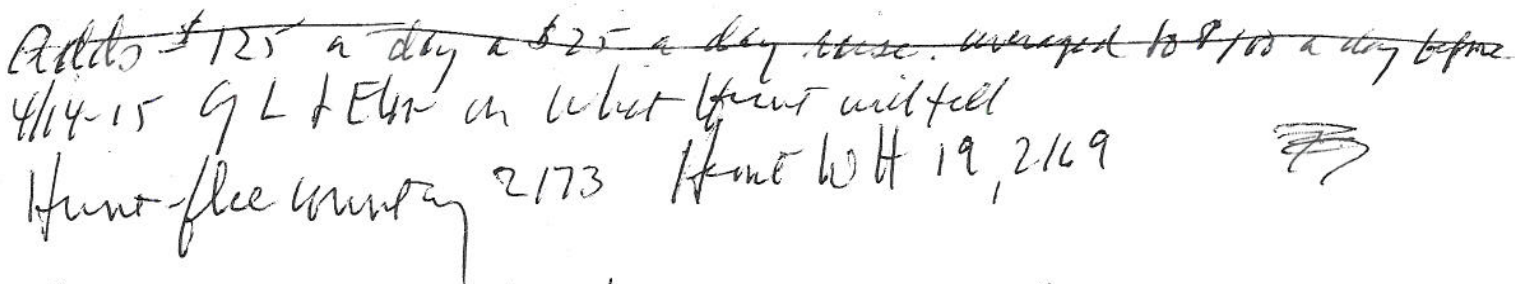 Adds $125 a day a $25 a day raise. averaged to $100 a day before
4/14-15 GL & Ehr on what Hunt will tell
Hunt-flee country 2173 Hunt WH 19, 2169